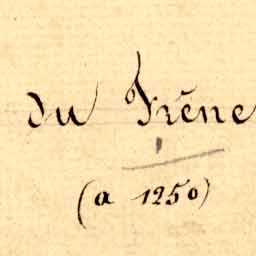 du Frêne
(a 1250)